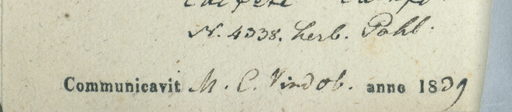 N. 4338. herb. Pohl.
Communicavit M. C. Vindob. anno 1839